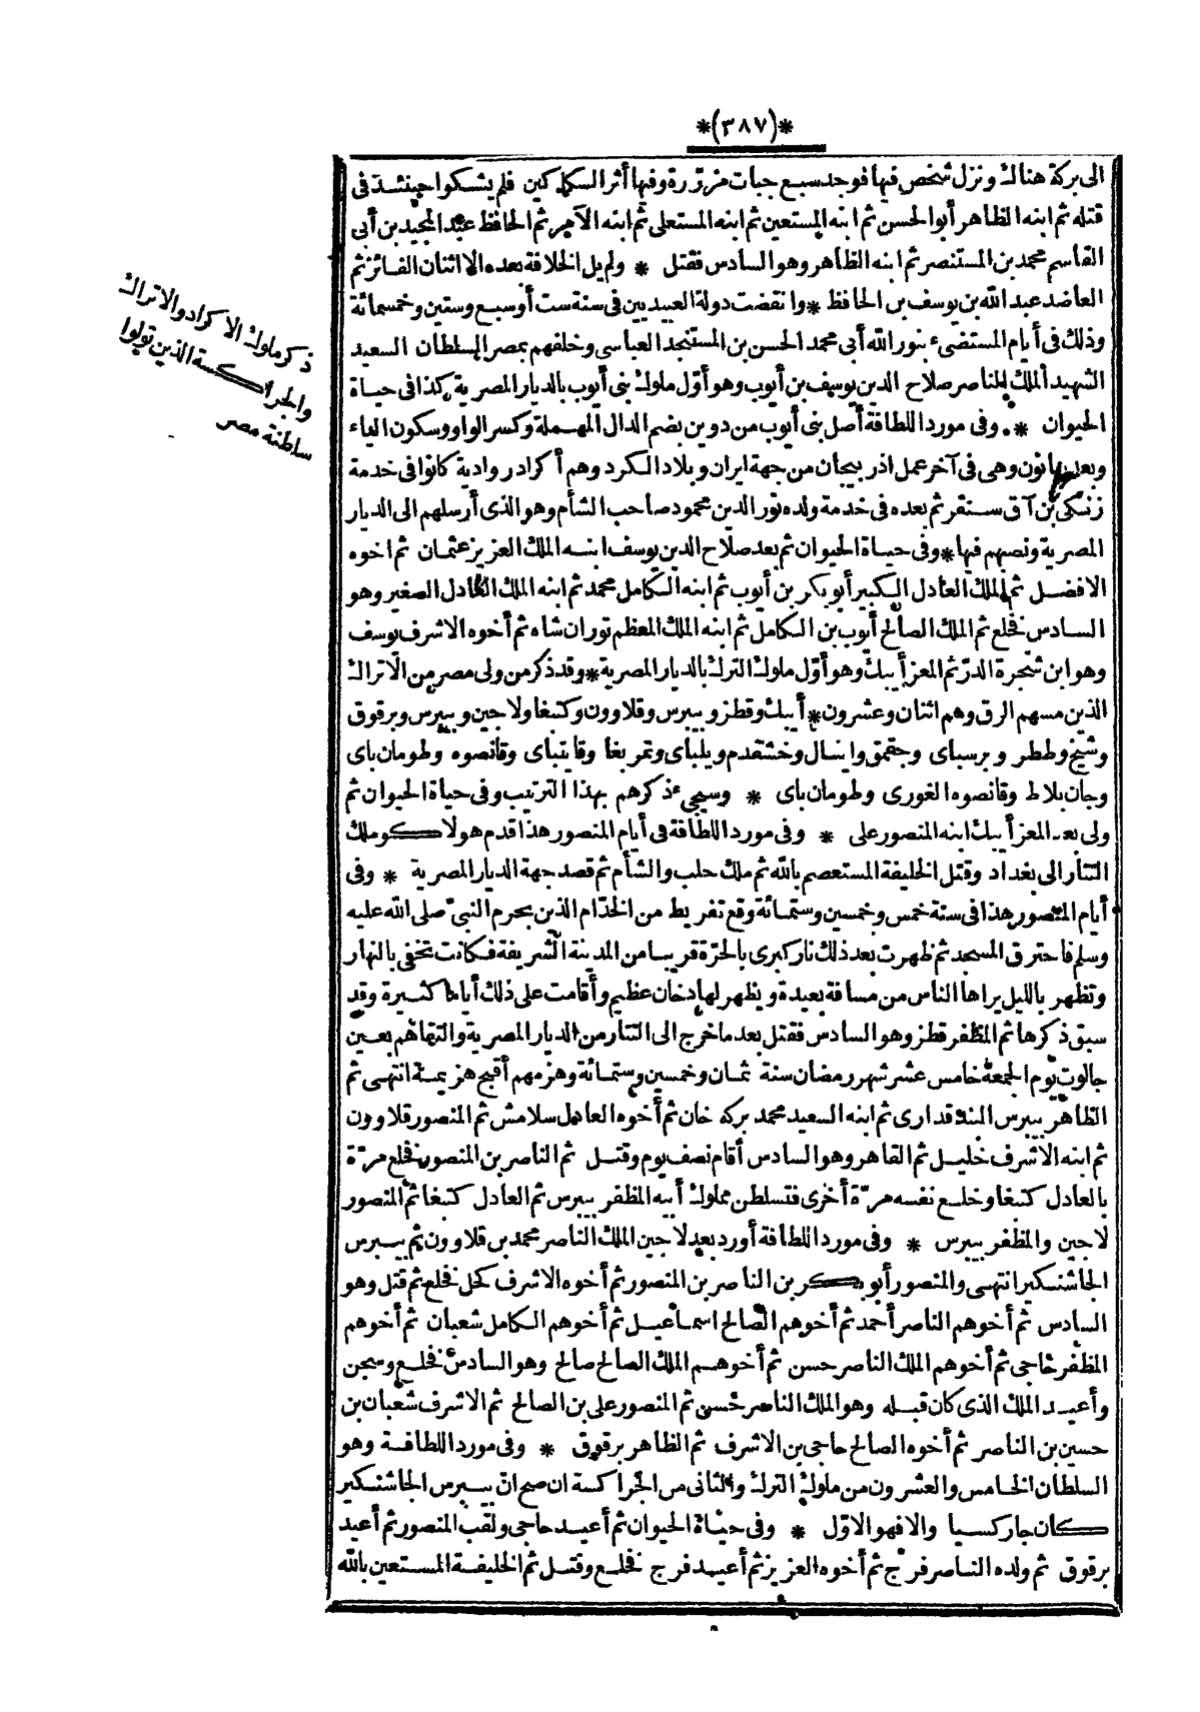 *(٣٨٧)*
الى بركة هناك ونزل شخص فيها فوجد سبع جبات مزررة وفيها أثر السكاكين فلم يشكوا حينئذ فى
قتله ثم ابنه الظاهر أبو الحسن ثم ابنه المستعين ثم ابنه المستعلى ثم ابنه الآمر ثم الحافظ عبد المجيد بن أبى
القاسم محمد بن المستنصر ثم ابنه الظاهر وهو السادس فقتل * ولم يل الخلافة بعده الا اثنان الفائز ثم
العاضد عبد الله بن يوسف بن الحافظ * وانقضت دولة العبيديين فى سنة ست أو سبع وستين وخمسمائة
وذلك فى أيام المستضىء بنور الله أبى محمد الحسن بن المستنجد العباسى وخلفهم بمصر السلطان السعيد
الشهيد الملك الناصر صلاح الدين يوسف بن أيوب وهو أوّل ملوك بنى أيوب بالديار المصرية كذا فى حياة
الحيوان * وفى مورد اللطافة أصل بنى أيوب من دوين بضم الدال المهملة وكسر الواو وسكون الياء
وبعدها نون وهى فى آخر عمل اذربيجان من جهة ايران وبلاد الكرد وهم أكراد روادية كانوا فى خدمة
زنكى بن آق سنقر ثم بعده فى خدمة ولده نور الدين محمود صاحب الشأم وهو الذى أرسلهم الى الديار
المصرية ونصبهم فيها * وفى حياة الحيوان ثم بعد صلاح الدين يوسف ابنه الملك العزيز عثمان ثم اخوه
الافضل ثم الملك العادل الكبير أبو بكر بن أيوب ثم ابنه الكامل محمد ثم ابنه الملك العادل الصغير وهو
السادس فخلع ثم الملك الصالح أيوب بن الكامل ثم ابنه الملك المعظم توران شاه ثم أخوه الاشرف يوسف
وهو ابن شجرة الدرّ ثم المعز أيبك وهو أوّل ملوك الترك بالديار المصرية * وقد ذكر من ولى مصر من الاتراك
الذين مسهم الرق وهم اثنان وعشرون * أيبك وقطز وبيبرس وقلاوون وكتبغا ولاجين وبيبرس وبرقوق
وشيخ وططر وبرسباى وجقمق واينال وخشقدم ويلباى وتمربغا وقايتباى وقانصوه وطومان باى
وجان بلاط وقانصوه الغورى وطومان باى * وسيجىء ذكرهم بهذا الترتيب وفى حياة الحيوان ثم
ولى بعد المعز أيبك ابنه المنصور على * وفى مورد اللطافة فى أيام المنصور هذا قدم هولاكو ملك
التتار الى بغداد وقتل الخليفة المستعصم بالله ثم ملك حلب والشأم ثم قصد جهة الديار المصرية * وفى
أيام المنصور هذا فى سنة خمس وخمسين وستمائة وقع تفريط من الخدّام الذين بحرم النبىّ صلى الله عليه
وسلم فاحترق المسجد ثم ظهرت بعد ذلك نار كبرى بالحرّة قريبا من المدينة الشريفة فكانت تخفى بالنهار
وتظهر بالليل يراها الناس من مسافة بعيدة ويظهر لها دخان عظيم وأقامت على ذلك أياما كثيرة وقد
سبق ذكرها ثم المظفر قطز وهو السادس فقتل بعد ما خرج الى التتار من الديار المصرية والتقاهم بعين
جالوت يوم الجمعة خامس عشر شهر رمضان سنة ثمان وخمسين وستمائة وهزمهم أقبح هزيمة انتهى ثم
الظاهر بيبرس البندقدارى ثم ابنه السعيد محمد بركه خان ثم أخوه العادل سلامش ثم المنصور قلاوون
ثم ابنه الاشرف خليل ثم القاهر وهو السادس أقام نصف يوم وقتل ثم الناصر بن المنصور فخلع مرّة
بالعادل كتبغا وخلع نفسه مرّة أخرى فتسلطن مملوك أبيه المظفر بيبرس ثم العادل كتبغا ثم المنصور
لاجين والمظفر بيبرس * وفى مورد اللطافة أورد بعد لاجين الملك الناصر محمد بن قلاوون ثم بيبرس
الجاشنكير انتهى والمنصور أبو بكر بن الناصر بن المنصور ثم أخوه الاشرف كجك فخلع ثم قتل وهو
السادس ثم أخوهم الناصر أحمد ثم أخوهم الصالح اسماعيل ثم أخوهم الكامل شعبان ثم أخوهم
المظفر حاجى ثم أخوهم الملك الناصر حسن ثم أخوهم الملك الصالح صالح وهو السادس فخلع وسجن
وأعيد الملك الذى كان قبله وهو الملك الناصر حسن ثم المنصور على بن الصالح ثم الاشرف شعبان بن
حسين بن الناصر ثم أخوه الصالح حاجى بن الاشرف ثم الظاهر برقوق * وفى مورد اللطافة وهو
السلطان الخامس والعشرون من ملوك الترك والثانى من الجراكسة ان صح ان بيبرس الجاشنكير
كان جاركسيا والا فهو الاوّل * وفى حياة الحيوان ثم أعيد حاجى ولقب المنصور ثم أعيد
برقوق ثم ولده الناصر فرج ثم أخوه العزيز ثم أعيد فرج فخلع وقتل ثم الخليفة المستعين بالله
ذكر ملوك الاكراد والاتراك
والجراكسة الذين تولوا
سلطنة مصر